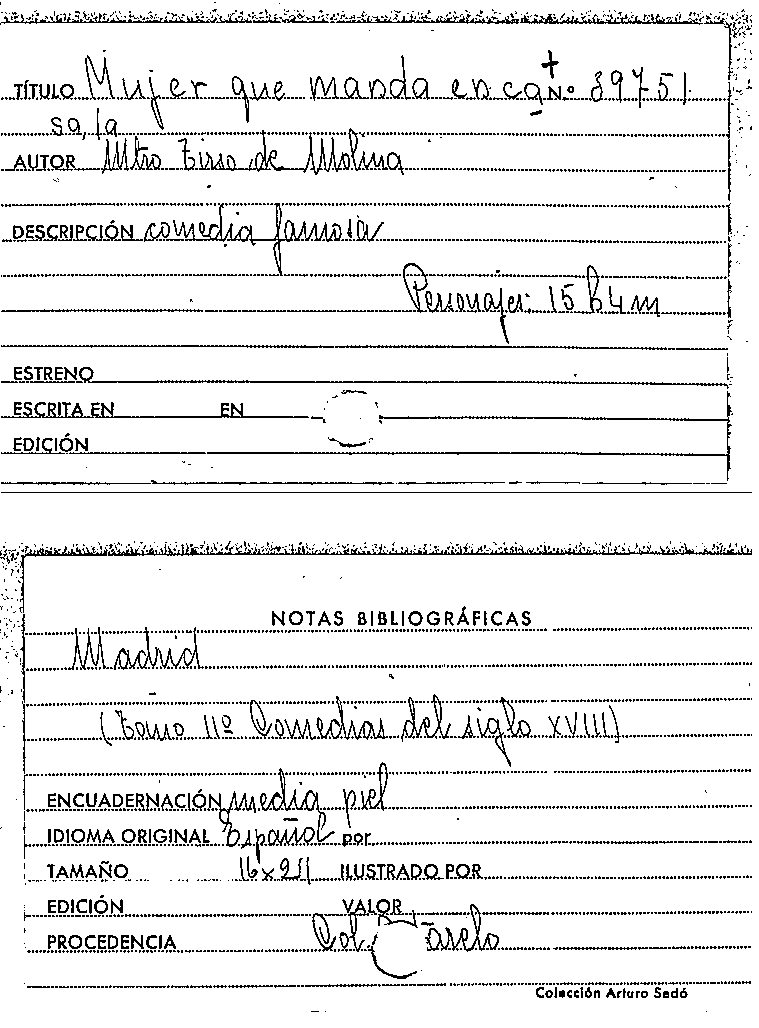 TÍTULO Mujer que manda en ca N.º 39751
sa, la
AUTOR Mtro Tirso de Molina
DESCRIPCIÓN comedia famosa
Personajes: 15 h 4 m
ESTRENO
ESCRITA EN EN
EDICIÓN
NOTAS BIBLIOGRÁFICAS
Madrid
(Tomo 11º Comedias del siglo XVIII)
ENCUADERNACIÓN media piel
IDIOMA ORIGINAL Español por
TAMAÑO 16 x 211 ILUSTRADO POR
EDICIÓN VALOR
PROCEDENCIA Col
Colección Arturo Sedó